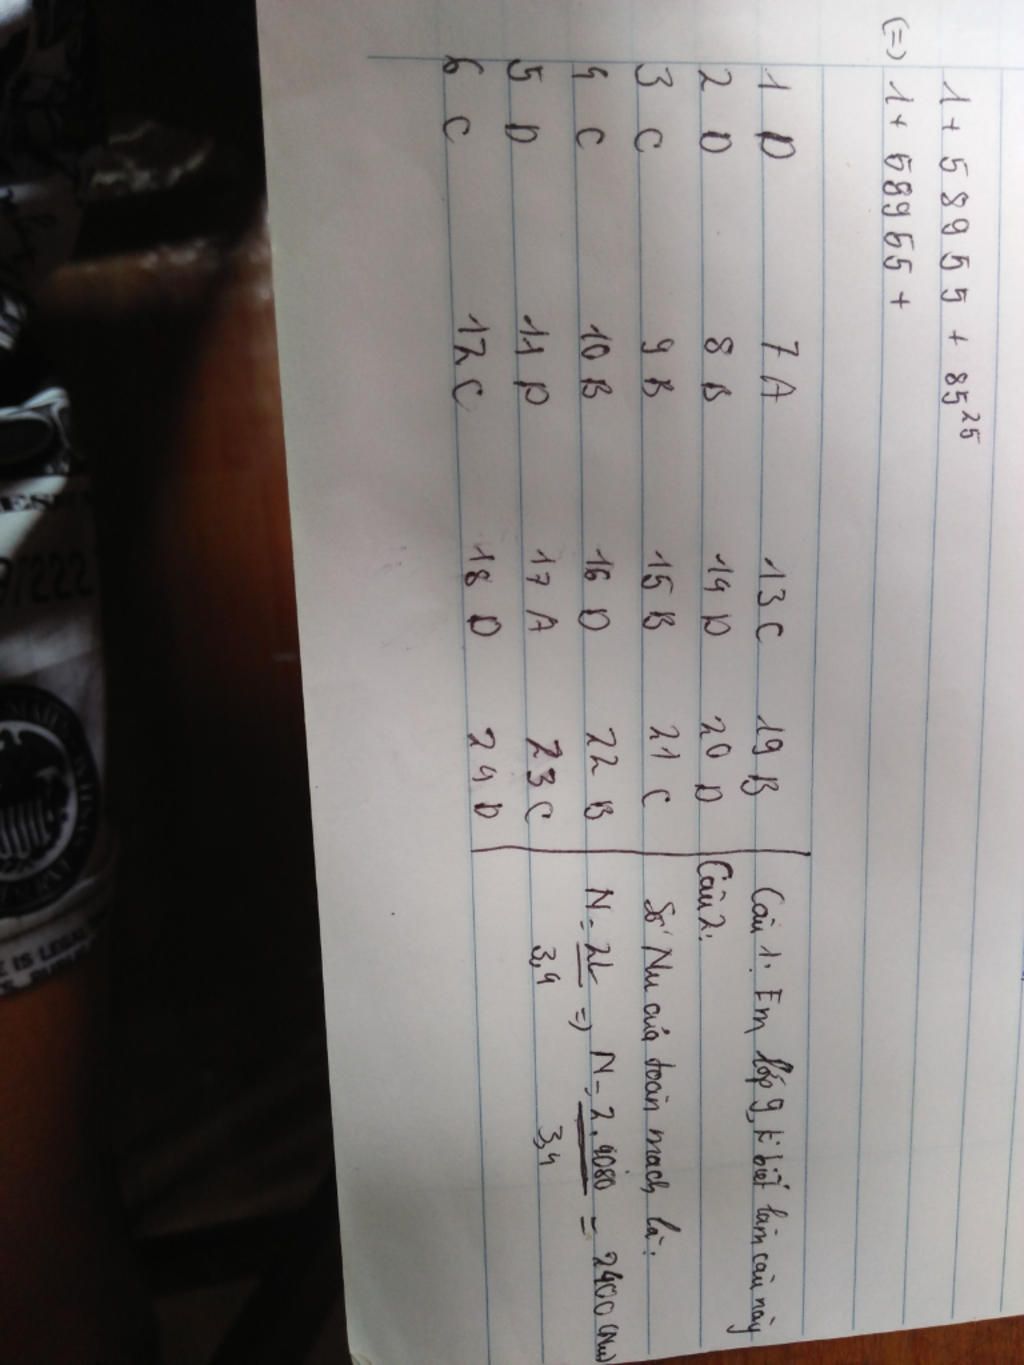 1 + 58955 + 85²⁵
(=) 1 + 58955 +
1 D 7 A 13 C 19 B
2 D 8 B 14 D 20 D
3 C 9 B 15 B 21 C
4 C 10 B 16 D 22 B
5 D 11 D 17 A 23 C
6 C 12 C 18 D 24 D
Câu 1: Em lớp 9, k biết làm câu này
Câu 2:
Số Nu của toàn mạch là:
N = 2L/3,4 => N = 2.4080/3,4 = 2400 (Nu)
222
E IS LEGAL